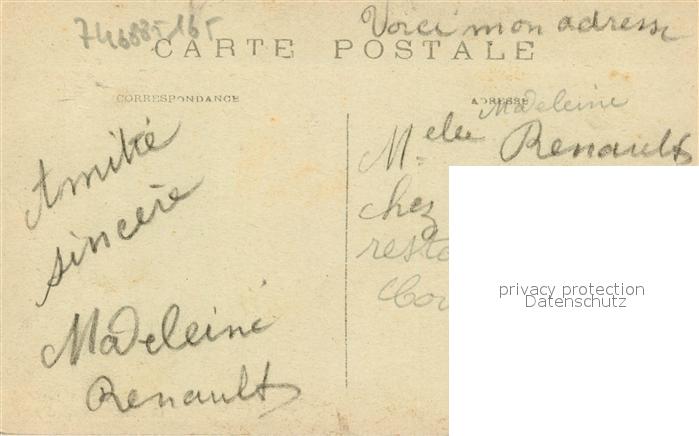 74688516s
Voici mon adresse
CARTE POSTALE
CORRESPONDANCE
ADRESSE
Amitié
sincère
Madeleine
Renault
Madeleine
Melle Renault
chez
privacy protection
Datenschutz